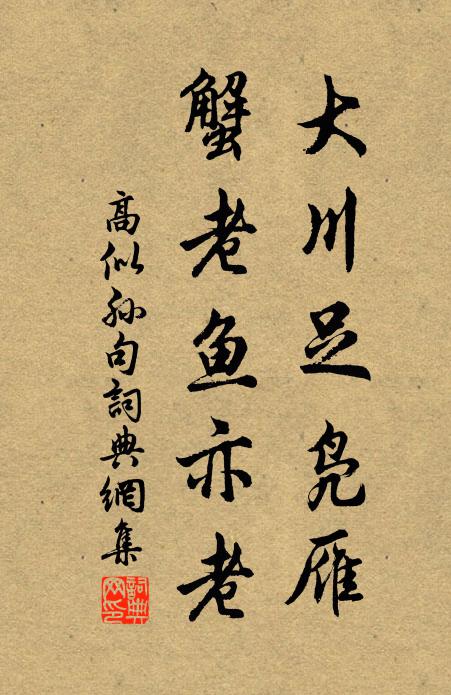 大川足凫雁
蟹老鱼亦老
高似孙句詞典網集
詞典网印